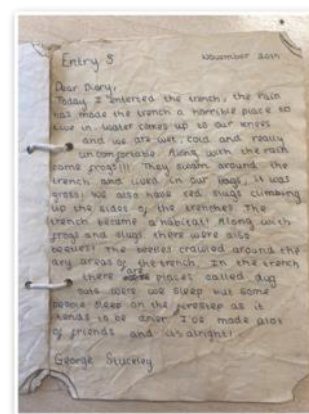 Entry 5 November 20th
Dear Diary,
Today I entered the trench, the rain
has made the trench a horrible place to
live in. Water comes up to our knees
and we are wet, cold and really
uncomfortable. Along with the rain
came frogs!!! They swam around the
trench and lived in our bags, it was
gross! We also have red slugs climbing
up the sides of the trenches. The
trench became a habitat! Along with
frogs and slugs there were also
beetles! The beetles crawled around the
dry areas of the trench. In the trench
there are places called dug
outs were we sleep but some
people sleep on the firestep as it
tends to be drier. I've made alot
of friends and its alright!
George Stuceley